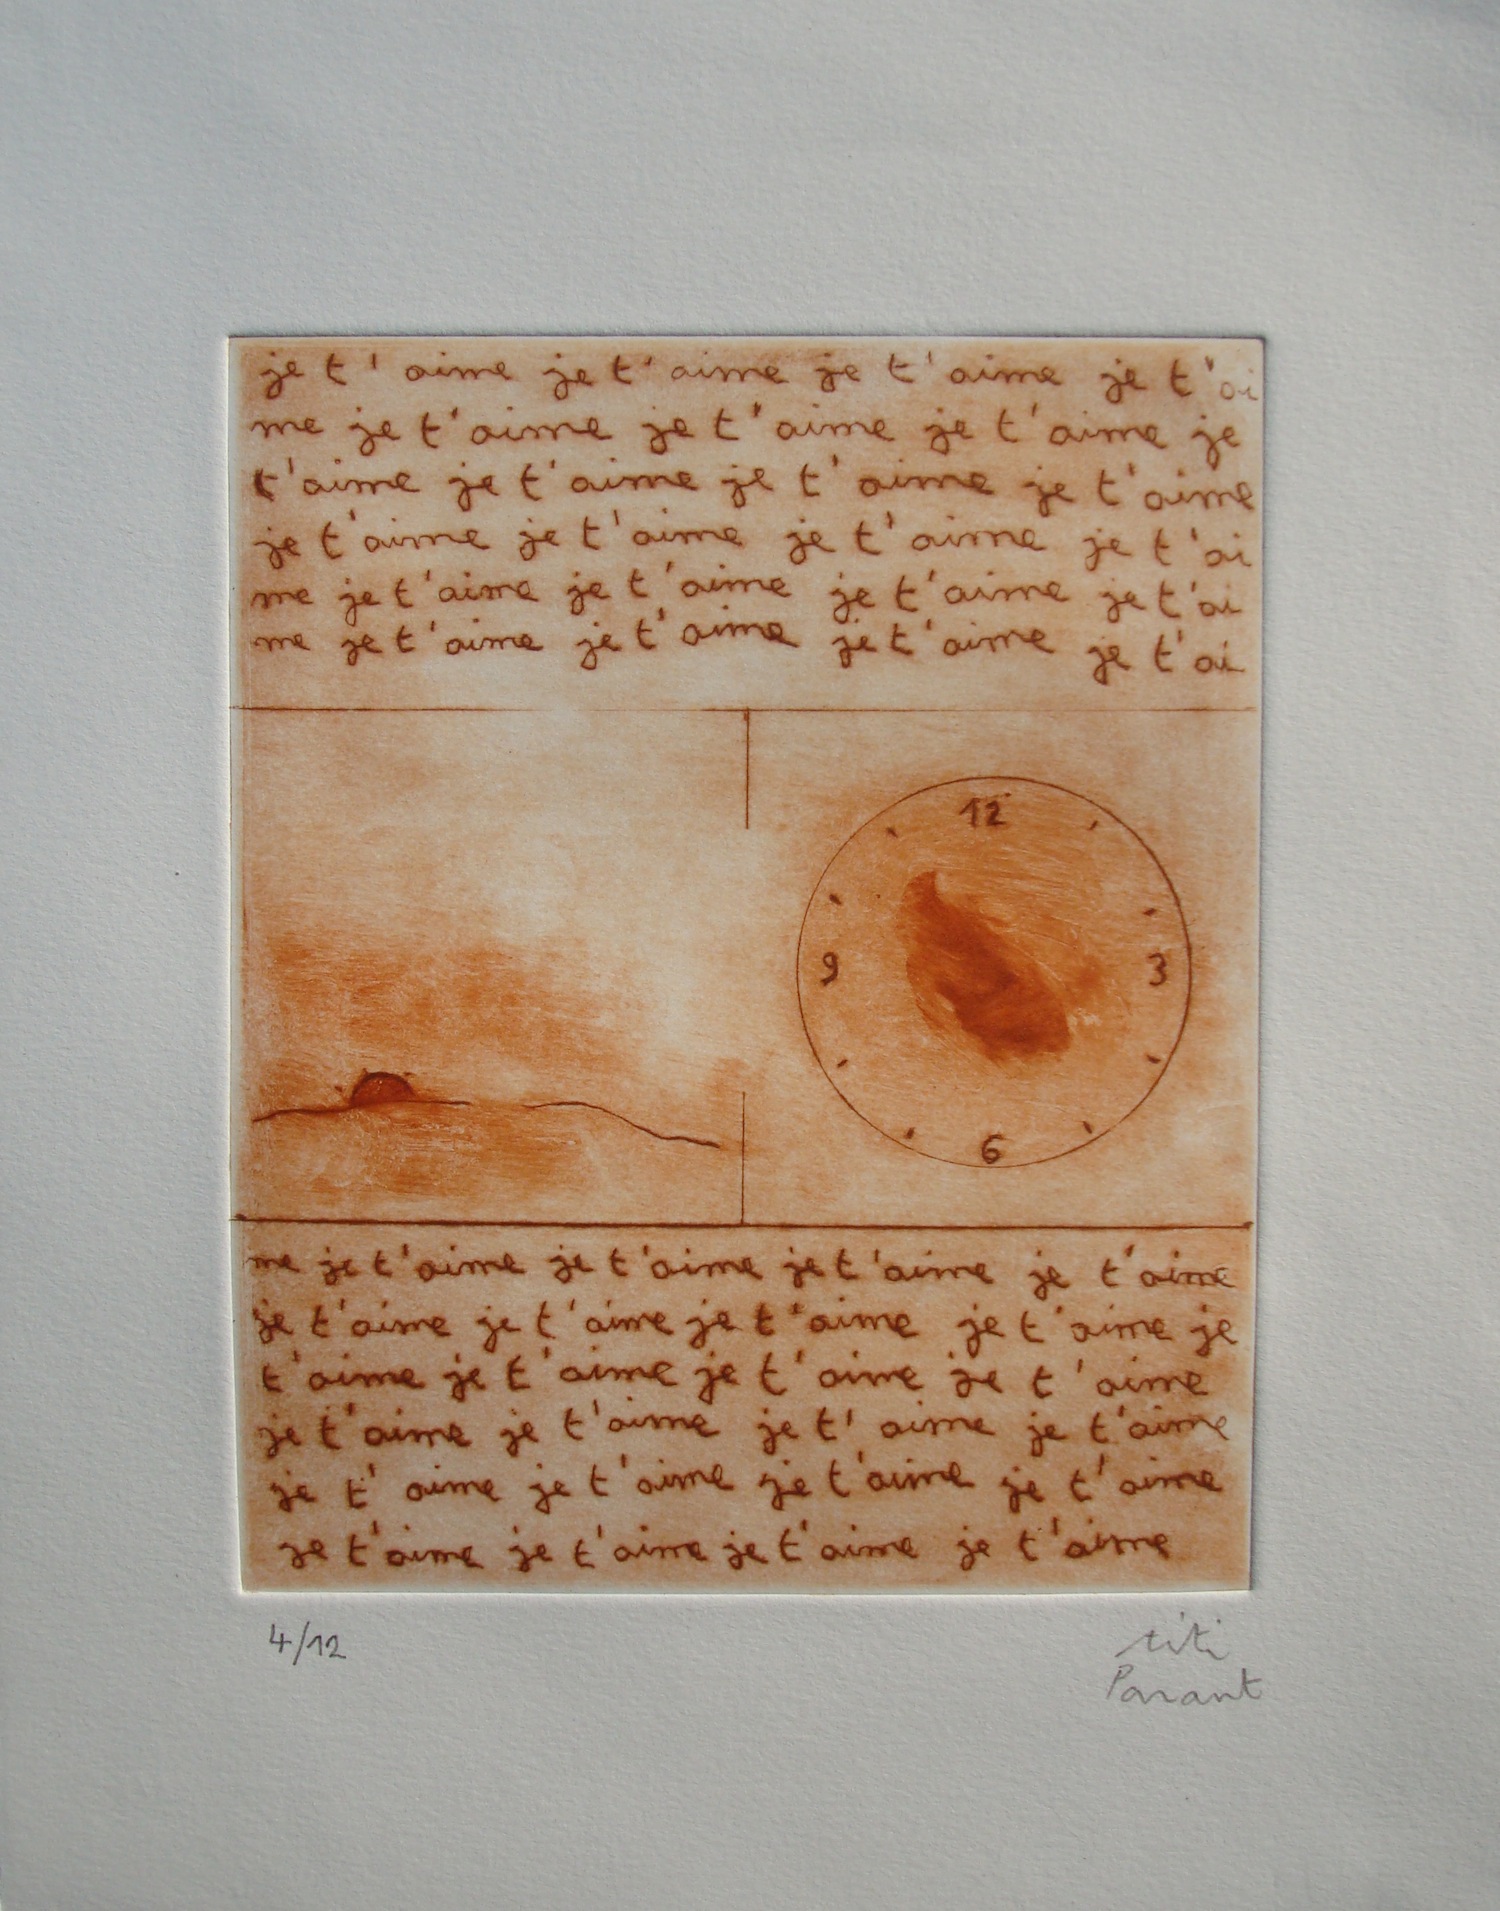 je t'aime je t'aime je t'aime je t'ai
me je t'aime je t'aime je t'aime je
t'aime je t'aime je t'aime je t'aime
je t'aime je t'aime je t'aime je t'ai
me je t'aime je t'aime je t'aime je t'ai
me je t'aime je t'aime je t'aime je t'ai
12
9 3
6
me je t'aime je t'aime je t'aime je t'aime
je t'aime je t'aime je t'aime je t'aime je
t'aime je t'aime je t'aime je t'aime
je t'aime je t'aime je t'aime je t'aime
je t'aime je t'aime je t'aime je t'aime
je t'aime je t'aime je t'aime je t'aime
4/12
titi
Parant